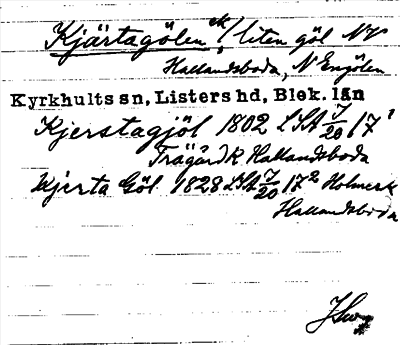 Kjärtagölen ek/ liten göl NV
Hallandsboda, N Engölen
Kyrkhults sn, Listers hd, Blek. län
Kjerstagjöl 1802 LSA J/20 17¹
Trägård k Hallandsboda
Kjerta Göl 1828 LSA J/20 17² Holmersk
Hallandsboda